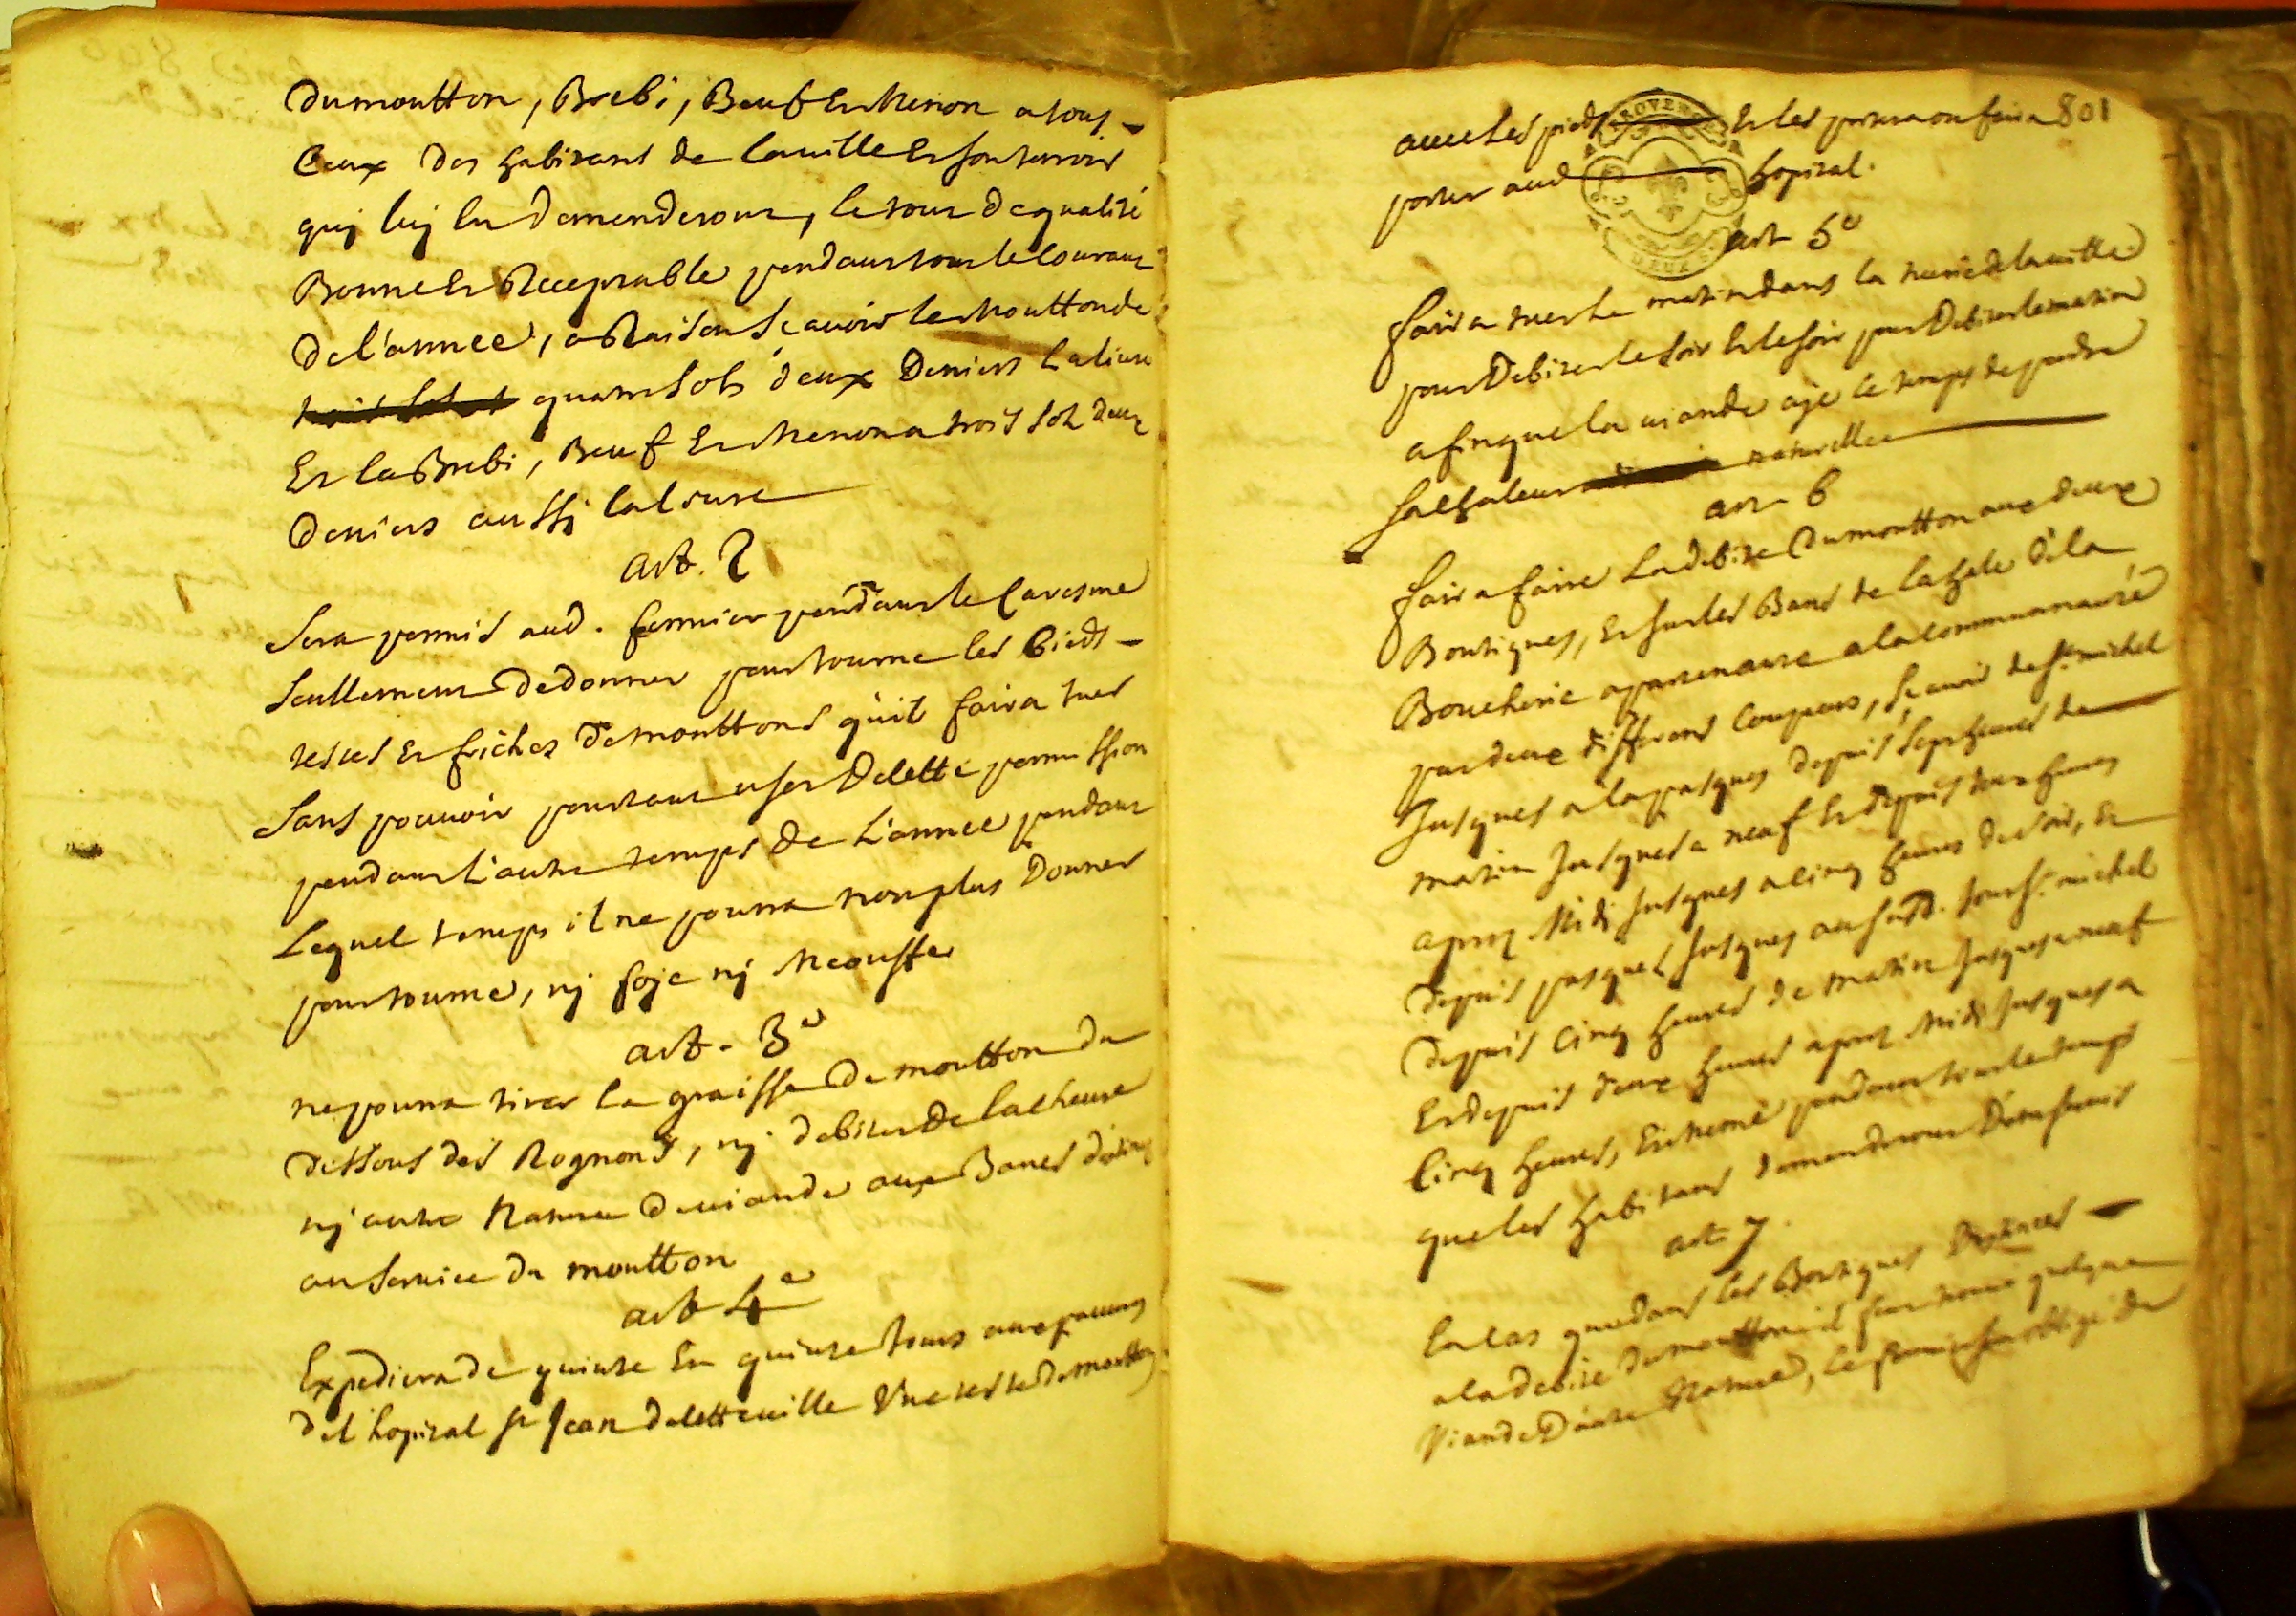 du moutton, Brebi, Beuf Et Menon a tous
Ceux des habitans de la ville Et son terroir
quj luj En demenderont, le tout de qualité
Bonne Et Receptable pendant tout le Courant
de l'année, a Raison Scavoir le Moutton de
quatre sols deux Deniers La livre
Et la Brebi, Beuf Et Menon a trois sols deux
Deniers aussj la livre
art. 2
Sera permis aud. fermier pendant le Caresme
Seullement de donner pour tourne les Pieds
testes Et friches de mouttons qu'il faira tuer
Sans pouvoir pourtant user De cette permission
pendant L'autre temps de L'année pendant
Lequel temps il ne pourra non plus Donner
pour tourne, nj foje nj Meousse
art. 3e
ne pourra tirer la graisse de moutton du
dessous des Rognons, nj debiter De la cheure
nj autre Nature de viande aux Bancs
au Service du moutton
art 4e
Expediera de quinze En quinze Jours aux pauvres
de l'hopital st Jean de cette ville Une teste de moutton
avec Les pieds Et les pourra on faira 801
porter aud hopital.
art 5e
faira tuer Le matin dans la tuerie de la ville
pour Debiter le soir Et le soir pour Debiter le matin
afin que la viande aje le temps de perdre
sa chaleur naturelle
art 6
faira faire La debite du moutton aux deux
Boutiques, Et sur les Bans de la hale de la
Boucherie apartenante a la Communauté
par deux differans Coupeurs, Scavoir de st. michel
Jusques a la pasques depuis sept heures de
matin Jusques a neuf Et depuis heures
apres Midi Jusques a cinq heures de soir, Et
depuis pasques Jusques au susd. Jour st. michel
depuis Cinq heures de matin Jusques a neuf
Et depuis deux heures apres Midi Jusques a
Cinq heures, Et meme pendant tout le temps
que les habitans demenderont D'etre servis
art 7.
En Cas que dans les Boutiques
a la debite du moutton il fut trouvé quelque
Viande D'autre Nature, le fermier sera obligé de